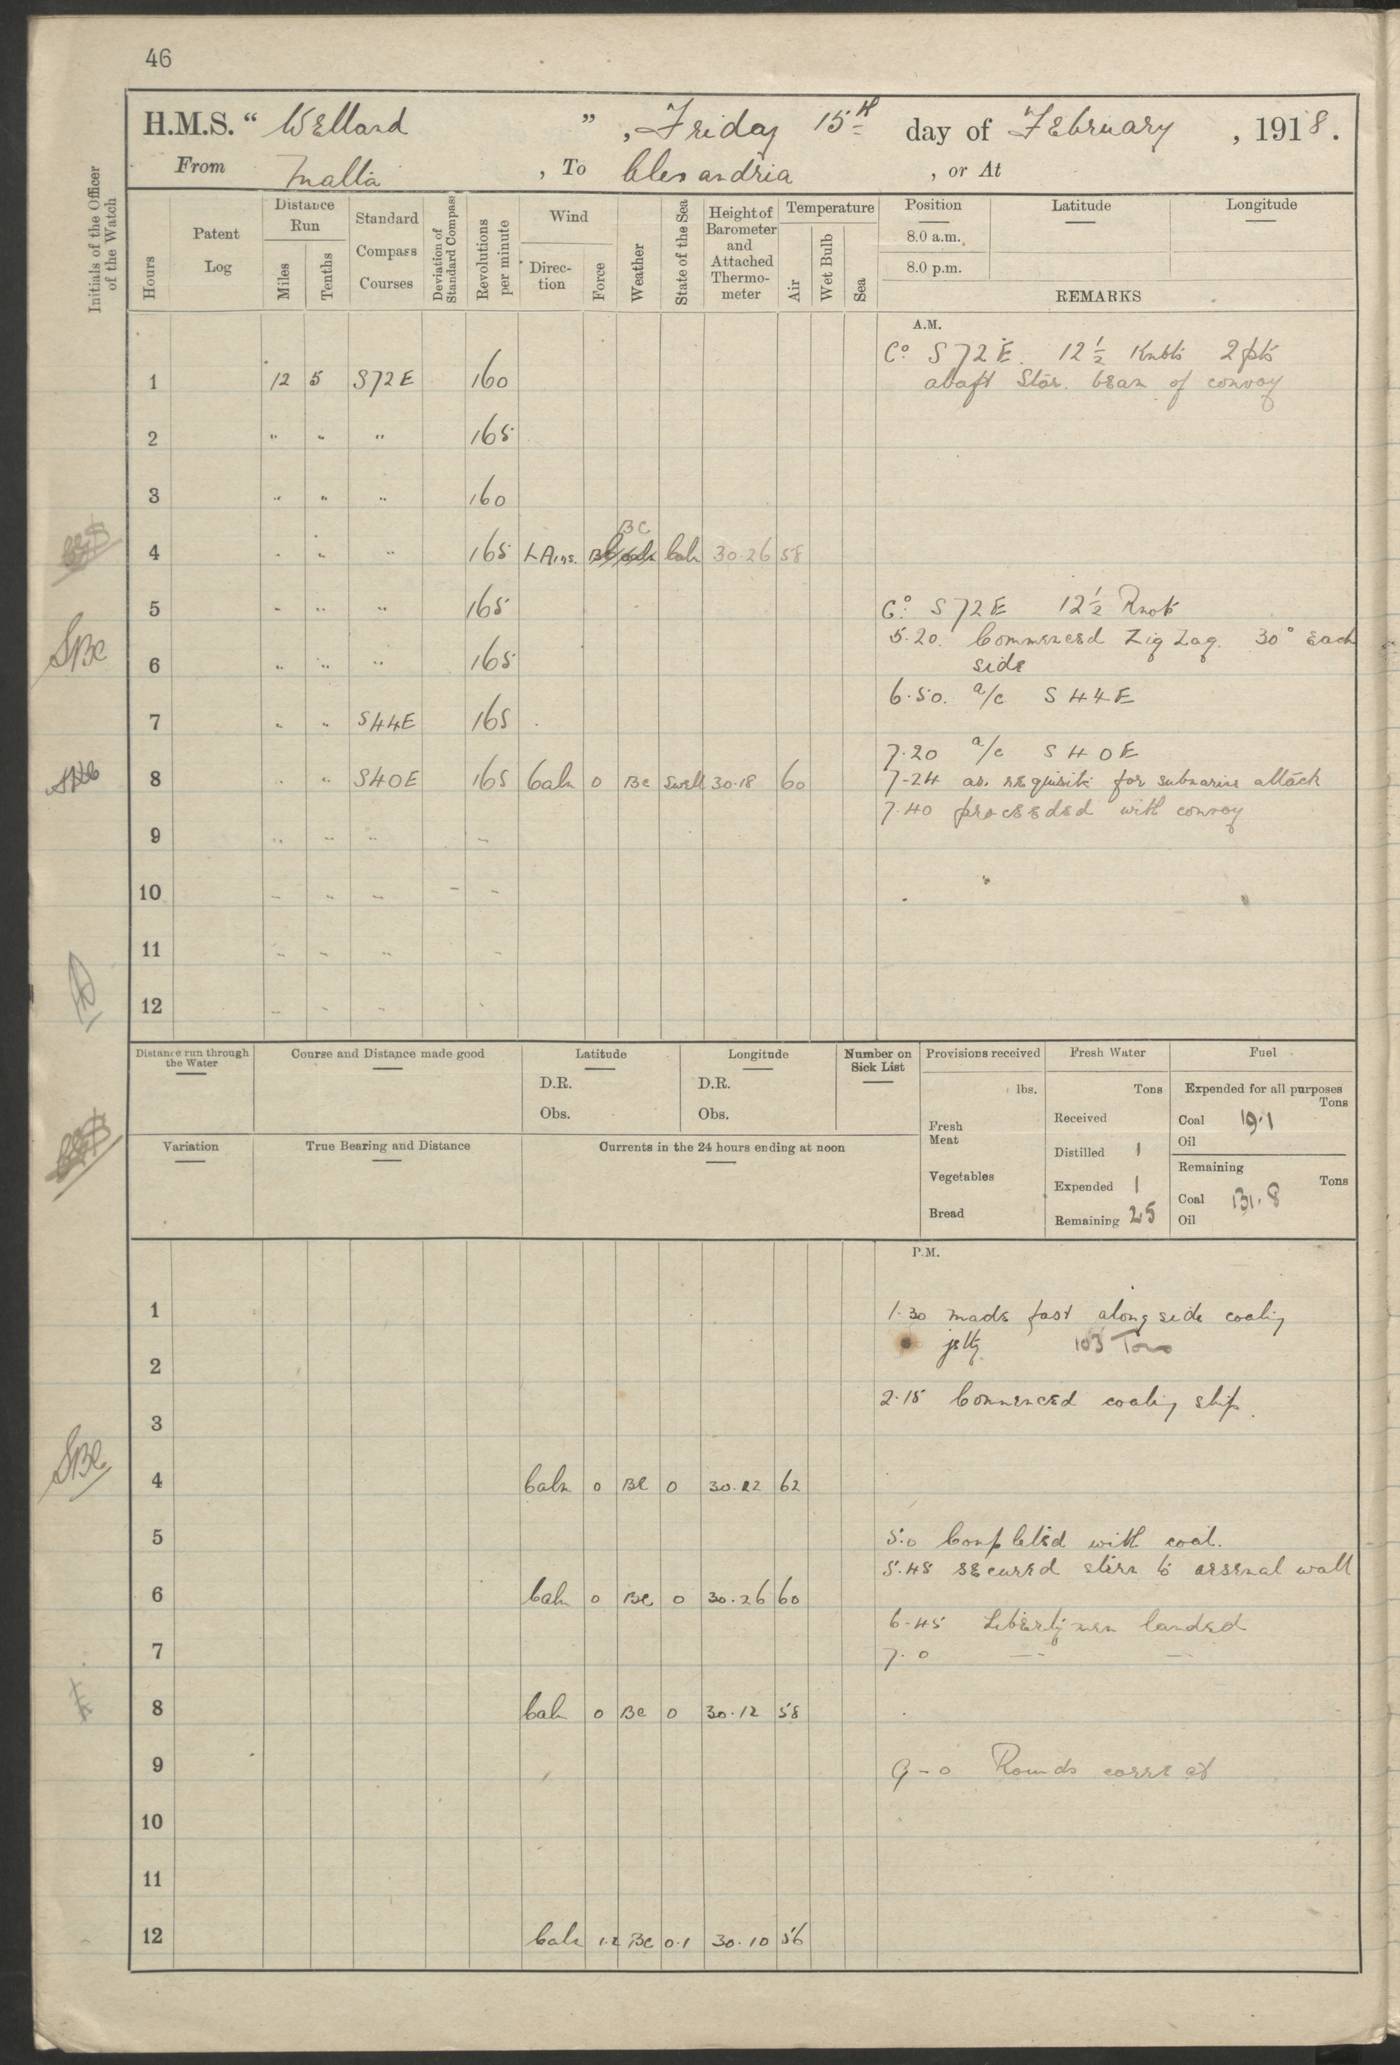 46
H.M.S. " Welland " , Friday 15th day of February , 1918.
From Malta , To Alexandria , or At
Initials of the Officer of the Watch
Hours
Patent Log
Distance Run
Miles
Tenths
Standard Compass Courses
Deviation of Standard Compass
Revolutions per minute
Wind
Direction
Force
Weather
State of the Sea
Height of Barometer and Attached Thermometer
Temperature
Air
Wet Bulb
Sea
Position
Latitude
Longitude
8.0 a.m.
8.0 p.m.
REMARKS
A.M.
Co S72E. 12½ Knots 2pts
1 12 5 S72E 160 abaft Star. beam of convoy
2 " " " 165
3 " " " 160
BC
4 " " " 165 L Airs. Calm 30.26 58
5 " " " 165 Co. S72E 12½ Knots
5.20. Commenced Zig Zag. 30° Each
6 " " " 165 side
6.50. a/c S44E
7 " " S44E 165
7.20 a/c S40E
8 " " S40E 165 Calm 0 BC Swell 30.18 60 7-24 as. requisite for submarine attack
7.40 proceeded with convoy
9 " " " "
10 " " " " "
11 " " " "
12 " " " "
Distance run through the Water
Course and Distance made good
Latitude
D.R.
Obs.
Longitude
D.R.
Obs.
Number on Sick List
Provisions received
lbs.
Fresh Meat
Vegetables
Bread
Fresh Water
Tons
Received
Distilled 1
Expended 1
Remaining 25
Fuel
Expended for all purposes
Tons
Coal 19.1
Oil
Remaining
Tons
Coal 131.8
Oil
Variation
True Bearing and Distance
Currents in the 24 hours ending at noon
P.M.
1 1.30 made fast alongside coaling
2 jetty. 103 Tons
2.15 Commenced coaling ship.
3
4 Calm 0 BC 0 30.22 62
5 5.0 Completed with coal.
5.45 secured stern to arsenal wall
6 Calm 0 BC 0 30.26 60
6-45 Liberty men landed
7 7.0 — —
8 Calm 0 BC 0 30.12 58
9 9-0 Rounds correct
10
11
12 Calm 1.2 BC 0.1 30.10 56